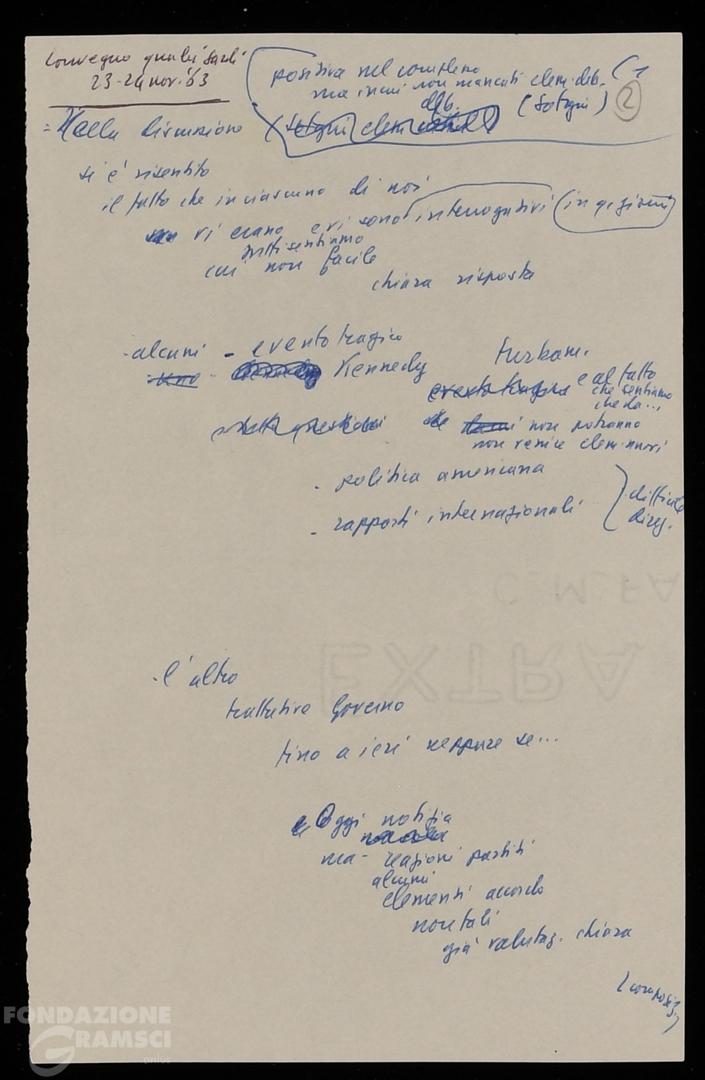 Convegno quadri sardi
23-24 nov. '63
positiva nel complesso
ma in cui non mancati elem. deb. (1
deb. (Sotgiu) 2
= Nella discussione (Sotgiu elem
si è risentito
il fatto che in ciascuno di noi
vi erano e vi sono interrogativi
tutti sentiamo
cui non facile
chiara risposta
- alcuni - evento tragico
Kennedy
turbam.
evento tragico e al fatto
che sentiamo
che da...
non potranno
non venire elem. nuovi
- politica americana
- rapporti internazionali
difficile
C. M. FA
EXTRA
- l'altro
trattative Governo
fino a ieri neppure se...
Oggi notizia
ma - reazioni partiti
alcuni
elementi accordo
non tali
già valutaz. chiara
FONDAZIONE
GRAMSCI
onlus